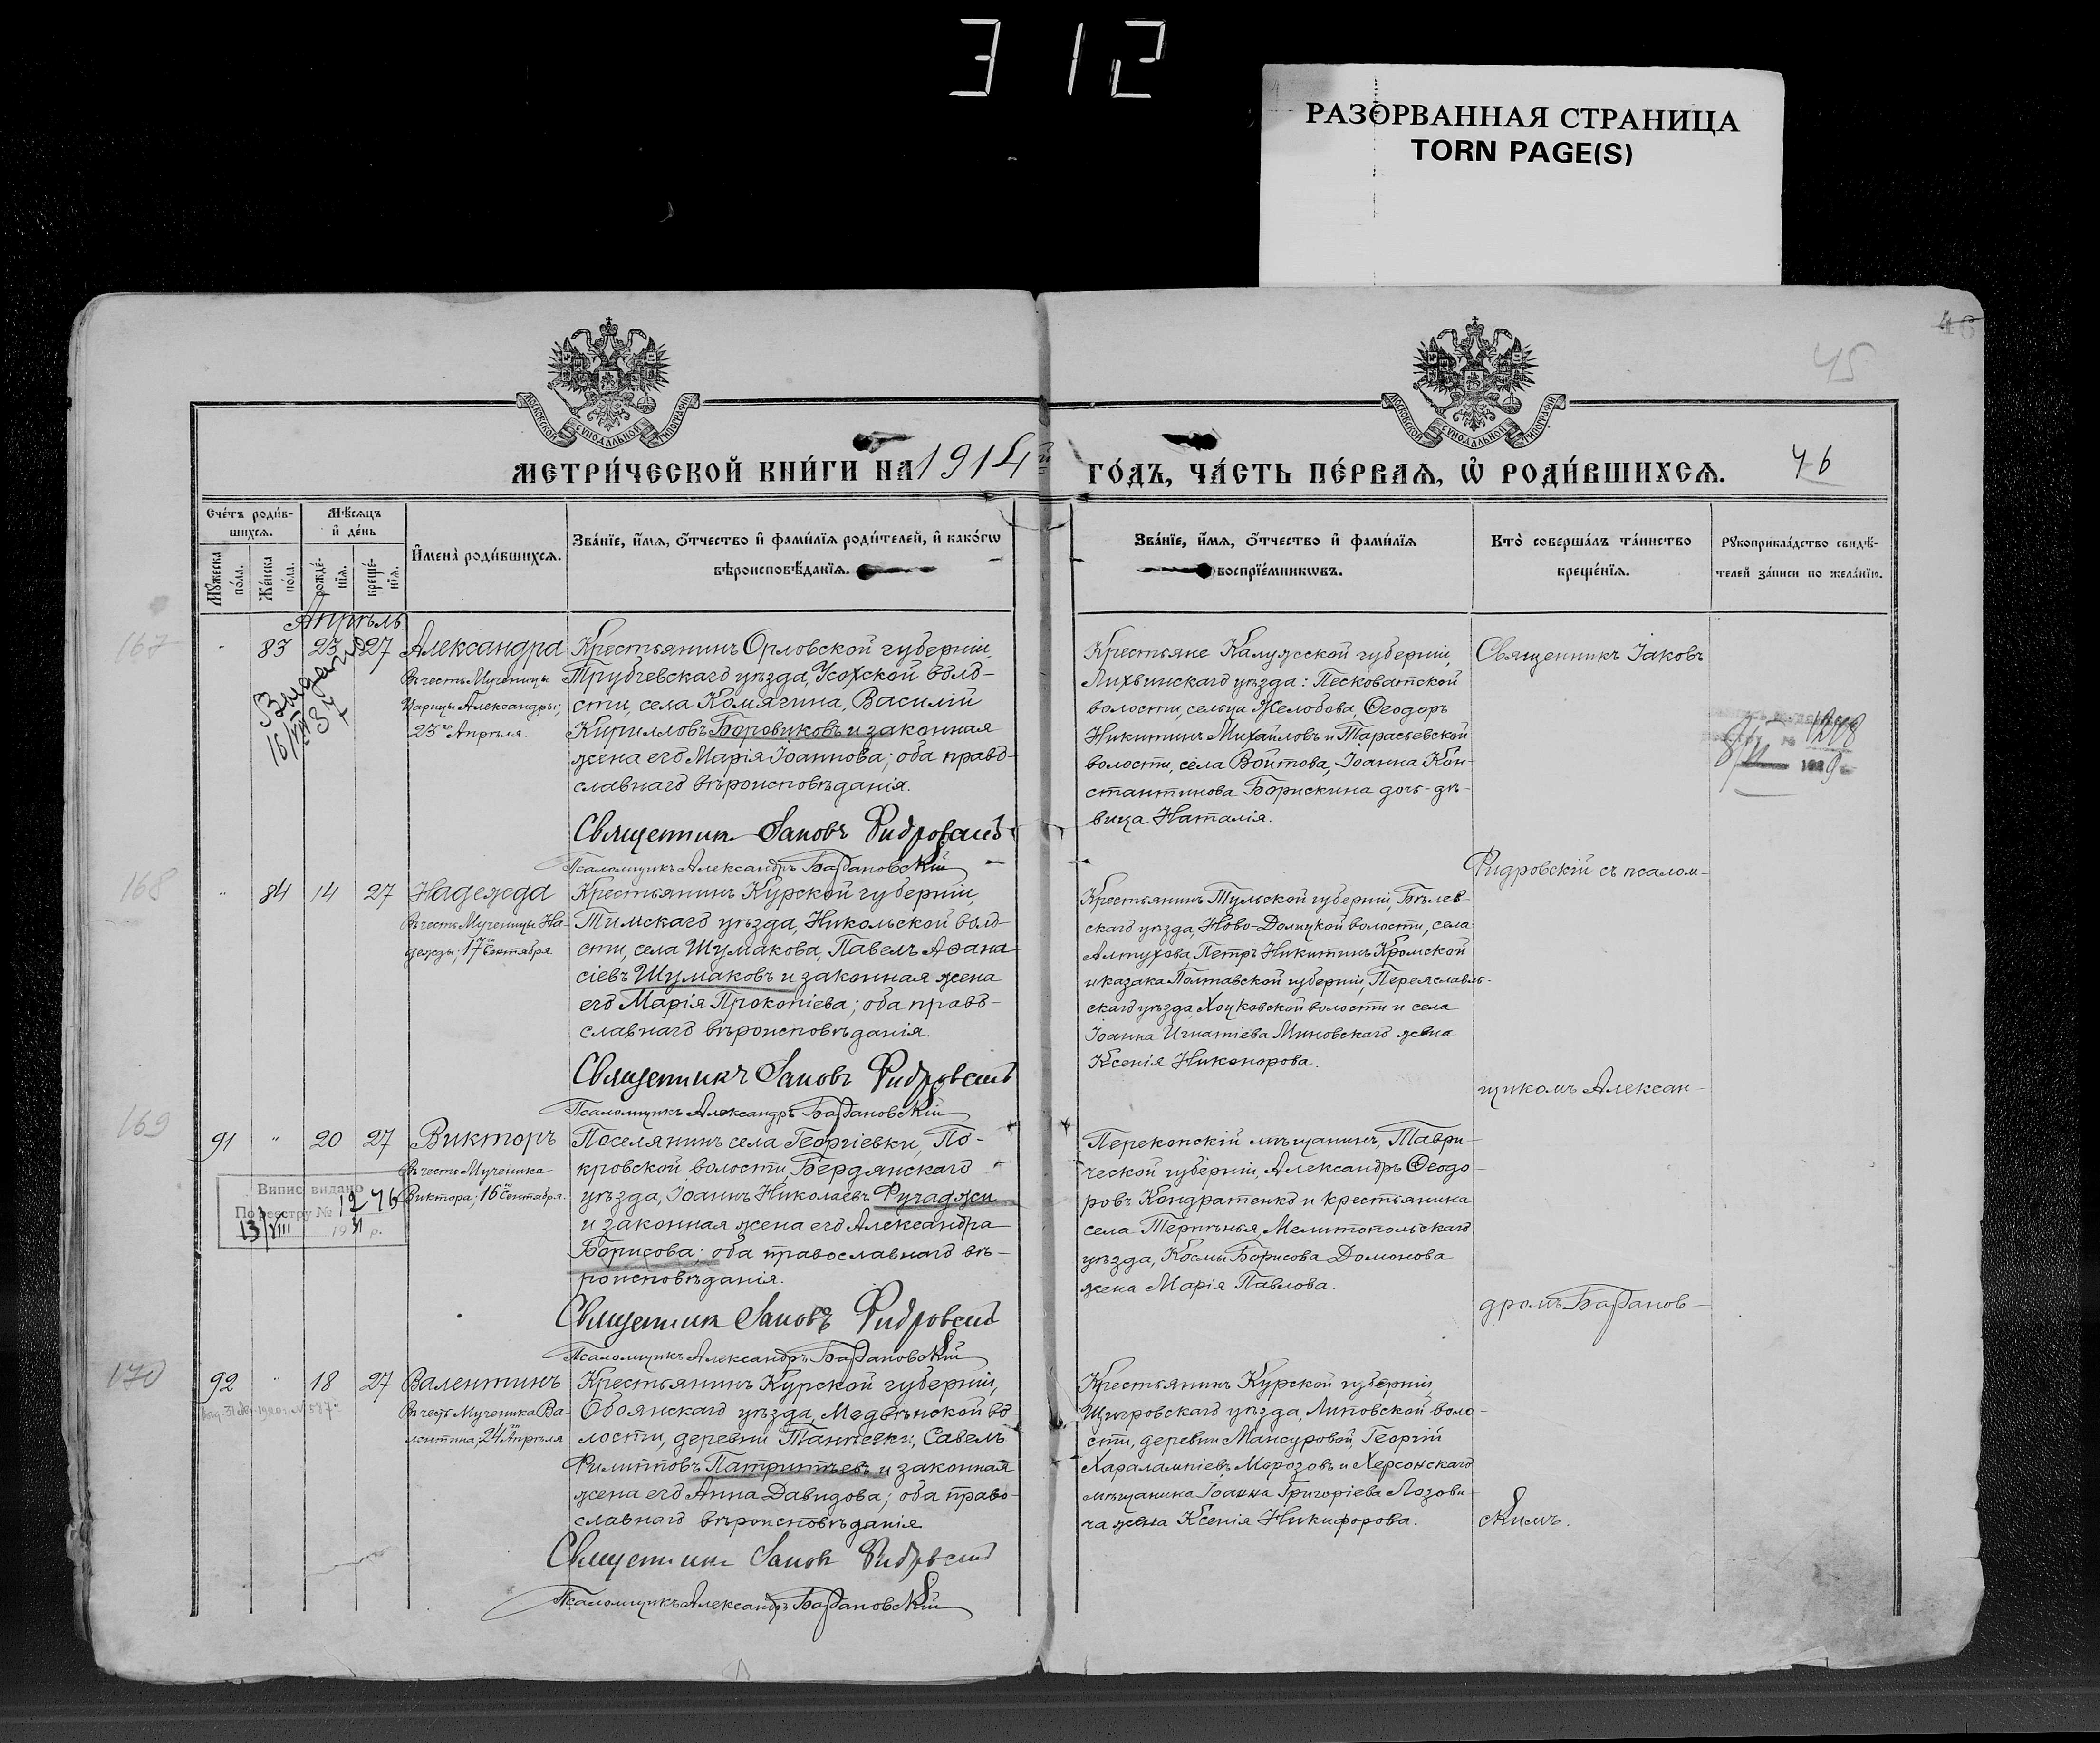 312
РАЗОРВАННАЯ СТРАНИЦА
TORN PAGE(S)
46
45
МОСКОВСКОЙ СѴНОДАЛЬНОЙ ТИПОГРАФІИ
МОСКОВСКОЙ СѴНОДАЛЬНОЙ ТИПОГРАФІИ
МЕТРИ́ЧЕСКОЙ КНИ́ГИ НА 1914
ГО́ДЪ, ЧА́СТЬ ПЕ́РВАЯ, Ѡ҆ РОДИ́ВШИХСЯ.
46
Сче́тъ роди́в-
шихся.
Мѣ́сяцъ
и҆ де́нь
Мꙋ́жеска
по́ла.
Же́нска
по́ла.
рожде́-
нїѧ.
креще́-
нїѧ.
И҆мена̀ роди́вшихся.
Зва́нїе, и҆́мѧ, ѻ҆́тчество и҆ фами́лїѧ роди́телей, и҆ како́гѡ
вѣроисповѣ́данїѧ.
Зва́нїе, и҆́мѧ, ѻ҆́тчество и҆ фами́лїѧ
воспрїе́мникѡвъ.
Кто̀ соверша́лъ та́инство
креще́нїѧ.
Рꙋкоприкла́дство свидѣ́-
телей за́писи по жела́нїю.
Апрѣль.
167
83 23 27
Александра
въ честь Мученицы
Царицы Александры;
23го Апрѣля.
Крестьянинъ Орловской губерніи,
Трубчевскаго уѣзда, Усохской воло-
сти, села Комягина, Василій
Кирилловъ Боровиковъ и законная
жена его Марія Іоаннова; оба право-
славнаго вѣроисповѣданія.
Священникъ Іаковъ Фидровскій
Псаломщикъ Александръ Баждановскій
Крестьяне Калужской губерніи,
Лихвинскаго уѣзда: Песковатской
волости, сельца Желобова, Ѳеодоръ
Никитинъ Михайловъ и Тарасьевской
волости, села Войтова, Іоанна Кон-
стантинова Борискина дочь-дѣ-
вица Наталія.
Священникъ Іаковъ
168
84 14 27
Надежда
въ честь Мученицы На-
дежды; 17го Сентября
Крестьянинъ Курской губерніи,
Тимскаго уѣзда, Никольской воло-
сти, села Шумакова, Павелъ Аѳана-
сіевъ Шумаковъ и законная жена
его Марія Прокопіева; оба право-
славнаго вѣроисповѣданія.
Священникъ Іаковъ Фидровскій
Псаломщикъ Александръ Баждановскій
Крестьянинъ Тульской губерніи, Бѣлев-
скаго уѣзда, Ново-Долицкой волости, села
Алтухова, Петръ Никитинъ Кромской
и казака Полтавской губерніи, Переяславль-
скаго уѣзда, Хоцковской волости и села
Іоанна Игнатіева Миновскаго жена
Ксенія Никонорова.
Фидровскій съ псалом-
169
91 20 27
Викторъ
въ честь Мученика
Виктора; 16го Сентября.
Випис видано
По реєстру № 1276
13/VIII 19 р.
Поселянинъ села Георгіевки, По-
кровской волости, Бердянскаго
уѣзда, Іоаннъ Николаевъ Ругаджи
и законная жена его Александра
Борисова; оба православнаго вѣ-
роисповѣданія.
Священникъ Іаковъ Фидровскій
Псаломщикъ Александръ Баждановскій
Перекопскій мѣщанинъ, Таври-
ческой губерніи, Александръ Ѳеодо-
ровъ Кондратенко и крестьянина
села Терпѣнья, Мелитопольскаго
уѣзда, Космы Борисова Домонова
жена Марія Павлова.
щикомъ Алексан-
дромъ Баждановскимъ.
170
92 18 27
Валентинъ
въ честь Мученика Ва-
лентина; 24го Апрѣля
Крестьянинъ Курской губерніи,
Обоянскаго уѣзда, Медвѣнской во-
лости, деревни Танѣевки, Савелъ
Филипповъ Патритѣевъ и законная
жена его Анна Давидова; оба право-
славнаго вѣроисповѣданія
Священникъ Іаковъ Фидровскій
Псаломщикъ Александръ Баждановскій
Крестьянинъ Курской губерніи,
Щигровскаго уѣзда, Липовской воло-
сти, деревни Мансуровой, Георгій
Харалампіевъ Морозовъ и Херсонскаго
мѣщанина Іоанна Григоріева Лозови-
ча жена Ксенія Никифорова.